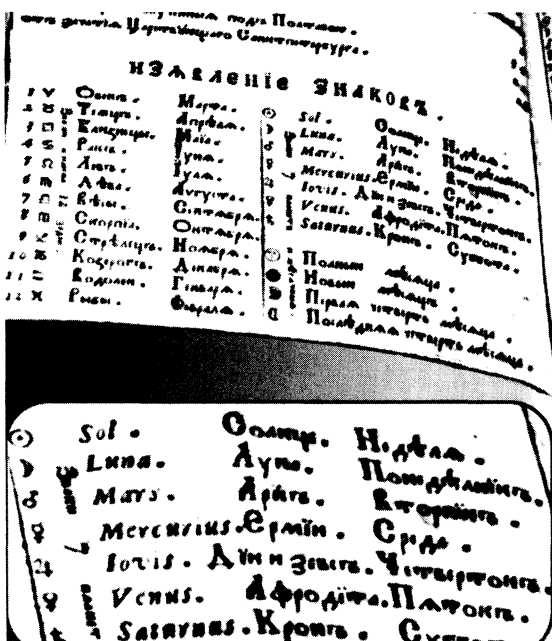 подъ Полтавою.
Царствующаго Санктпитербурга.
ИЗѦВЛЕНІЕ ЗНАКОВЪ.
1 ♈ Овенъ. Мартъ.
2 ♉ Телецъ. Апрѣль.
3 ♊ Близнецы. Маїй.
4 ♋ Ракъ. Їунь.
5 ♌ Левъ. Їуль.
6 ♍ Дѣва. Августъ.
7 ♎ Вѣсы. Сентѧбрь.
8 ♏ Скорпїѧ. Октѧбрь.
9 ♐ Стрѣлецъ. Ноѧбрь.
10 ♑ Козерогъ. Декабрь.
11 ♒ Водолей. Генварь.
12 ♓ Рыбы. Февраль.
☉ Sol. Солнце. Недѣлѧ.
☽ Luna. Луна. Понедѣлникъ.
♂ Mars. Арисъ. Вторникъ.
☿ Mercurius. Ермїй. Среда.
♃ Iovis. Дїй и Зевесъ. Четвертокъ.
♀ Venus. Афродїта. Пѧтокъ.
♄ Saturnus. Кронъ. Суббота.
Полный мѣсѧцъ.
Новый мѣсѧцъ.
Перваѧ четверть мѣсѧца.
Послѣднѧѧ четверть мѣсѧца.
☉ Sol. Солнце. Недѣлѧ.
☽ Luna. Луна. Понедѣлникъ.
♂ Mars. Арисъ. Вторникъ.
☿ Mercurius. Ермїй. Среда.
♃ Iovis. Дїй и Зевесъ. Четвертокъ.
♀ Venus. Афродїта. Пѧтокъ.
♄ Saturnus. Кронъ. Суббот